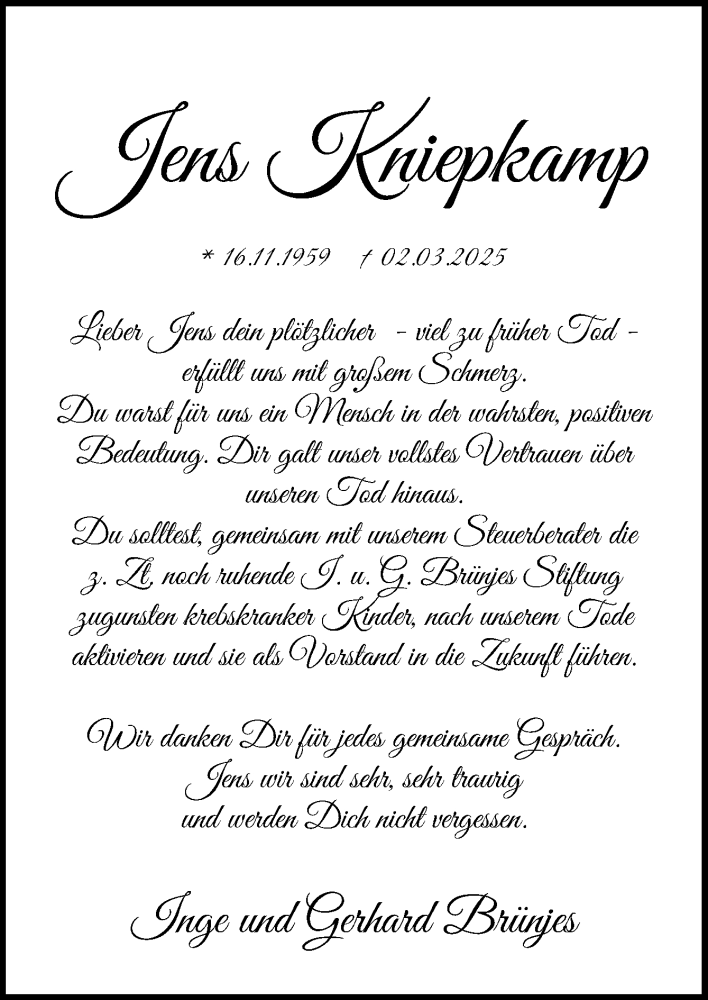 Jens Kniepkamp
* 16.11.1959 † 02.03.2025
Lieber Jens dein plötzlicher - viel zu früher Tod -
erfüllt uns mit großem Schmerz.
Du warst für uns ein Mensch in der wahrsten, positiven
Bedeutung. Dir galt unser vollstes Vertrauen über
unseren Tod hinaus.
Du solltest, gemeinsam mit unserem Steuerberater die
z. Zt, noch ruhende I. u. G. Brünjes Stiftung
zugunsten krebskranker Kinder, nach unserem Tode
aktivieren und sie als Vorstand in die Zukunft führen.
Wir danken Dir für jedes gemeinsame Gespräch.
Jens wir sind sehr, sehr traurig
und werden Dich nicht vergessen.
Inge und Gerhard Brünjes